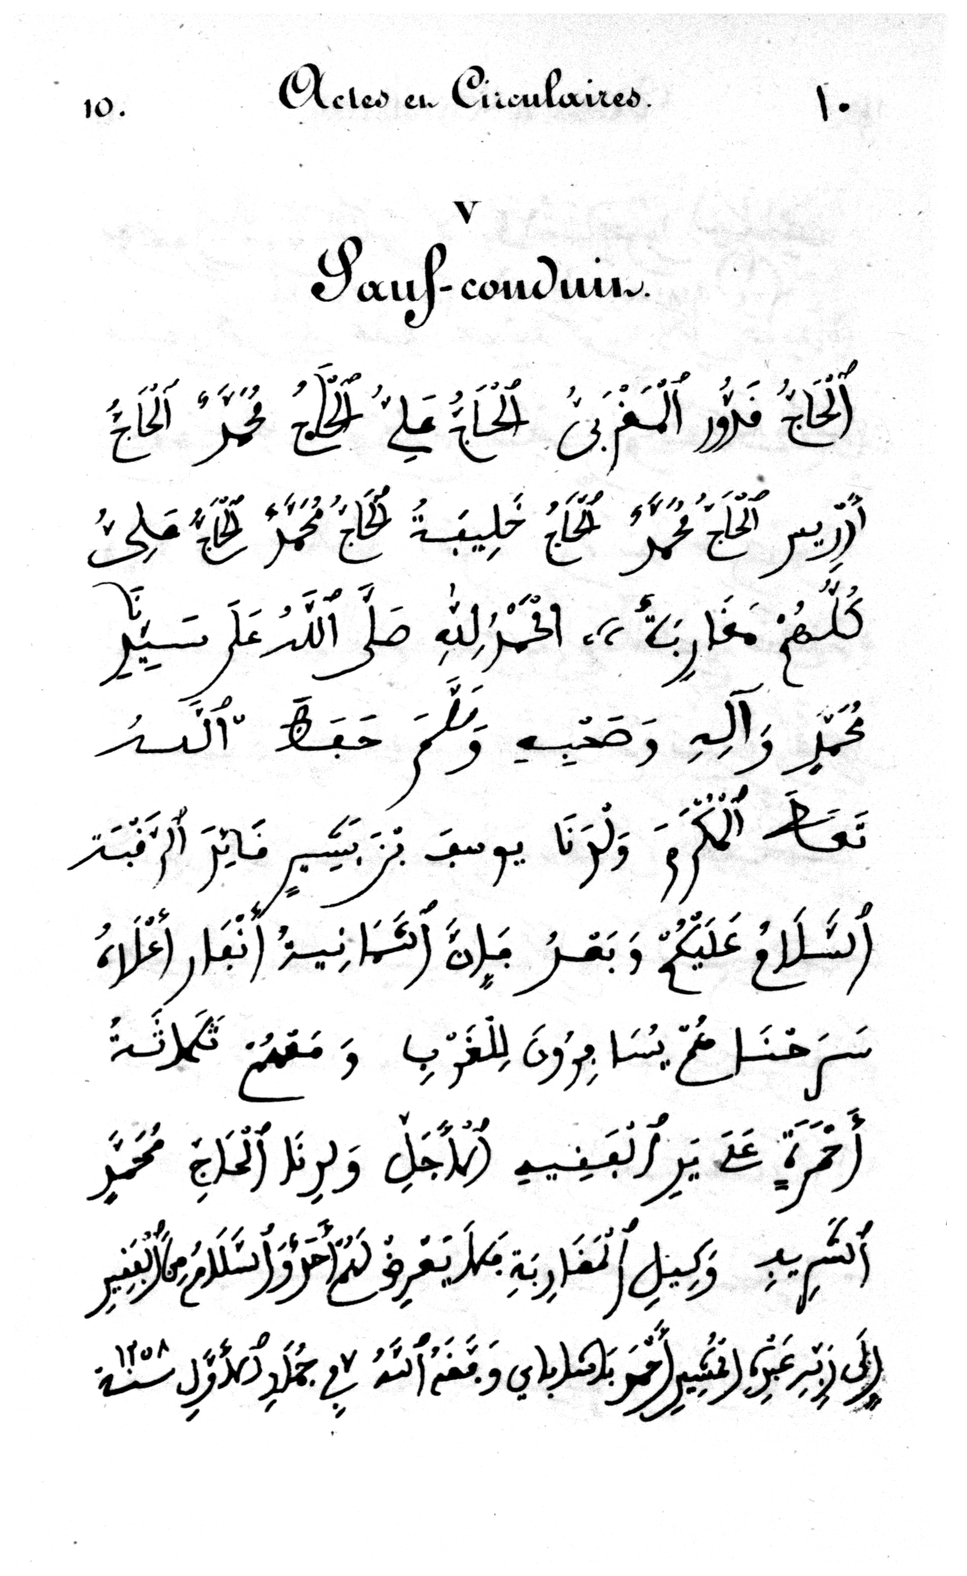 10. Actes et Circulaires. ١٠
V
Sauf-conduit.
اَلْحَاجُّ قَدُّور اَلْمَغْرَبِيُّ اَلْحَاجُّ عَلِيُّ اَلْحَاجُّ مُحَمَّدٌ اَلْحَاجُّ
أَدْرِيس اَلْحَاجُّ مُحَمَّدٌ اَلْحَاجُّ خَلِيفَةُ اَلْحَاجُّ مُحَمَّدٌ اَلْحَاجُّ عَلِيُّ
كُلُّهُمْ مَغَارِبَةٌ، اَلْحَمْدُ لِلَّهِ صَلَّى اَللَّهُ عَلَى سَيِّدِنَا
مُحَمَّدٍ وَآلِهِ وَصَحْبِهِ وَسَلَّمَ حَفَظَ اَللَّهُ
تَعَالَى اَلْمُكَرَّمَ وَلَدَنَا يوسف بْنَ بَشِيرٍ قَائِدَ اَلرَّقْبَة
اَلسَّلَامُ عَلَيْكُمْ وَبَعْدُ فَإِنَّ اَلثَّمَانِيَةُ أَنْفَار أَعْلَاهُ
سَرَحْنَا هُمْ يُسَافِرُونَ لِلْغَرْبِ وَمَعَهُمْ ثَلَاثَةُ
أَحْمِرَةٍ عَلَى يَدِ اَلْفَقِيهِ اَلْأَجَلِّ وَلَدِنَا اَلْحَاجِّ مُحَمَّدٍ
اَلشَّرِيفِ وَكِيلِ اَلْمَغَارِبَةِ فَلَا يَتَعَرِضْ لَهُمْ أَحَدٌ وَالسَّلَامُ مِنَ اَلْفَقِيرِ
إِلَى رَبِّهِ عَبْدِهِ اَلْمُشِيرِ أَحْمَد بَاشَا باي وَفَّقَهُ اَللَّهُ ٧ فِي جُمَادَى اَلْأَوَّلِ سنة ١٢٥٨